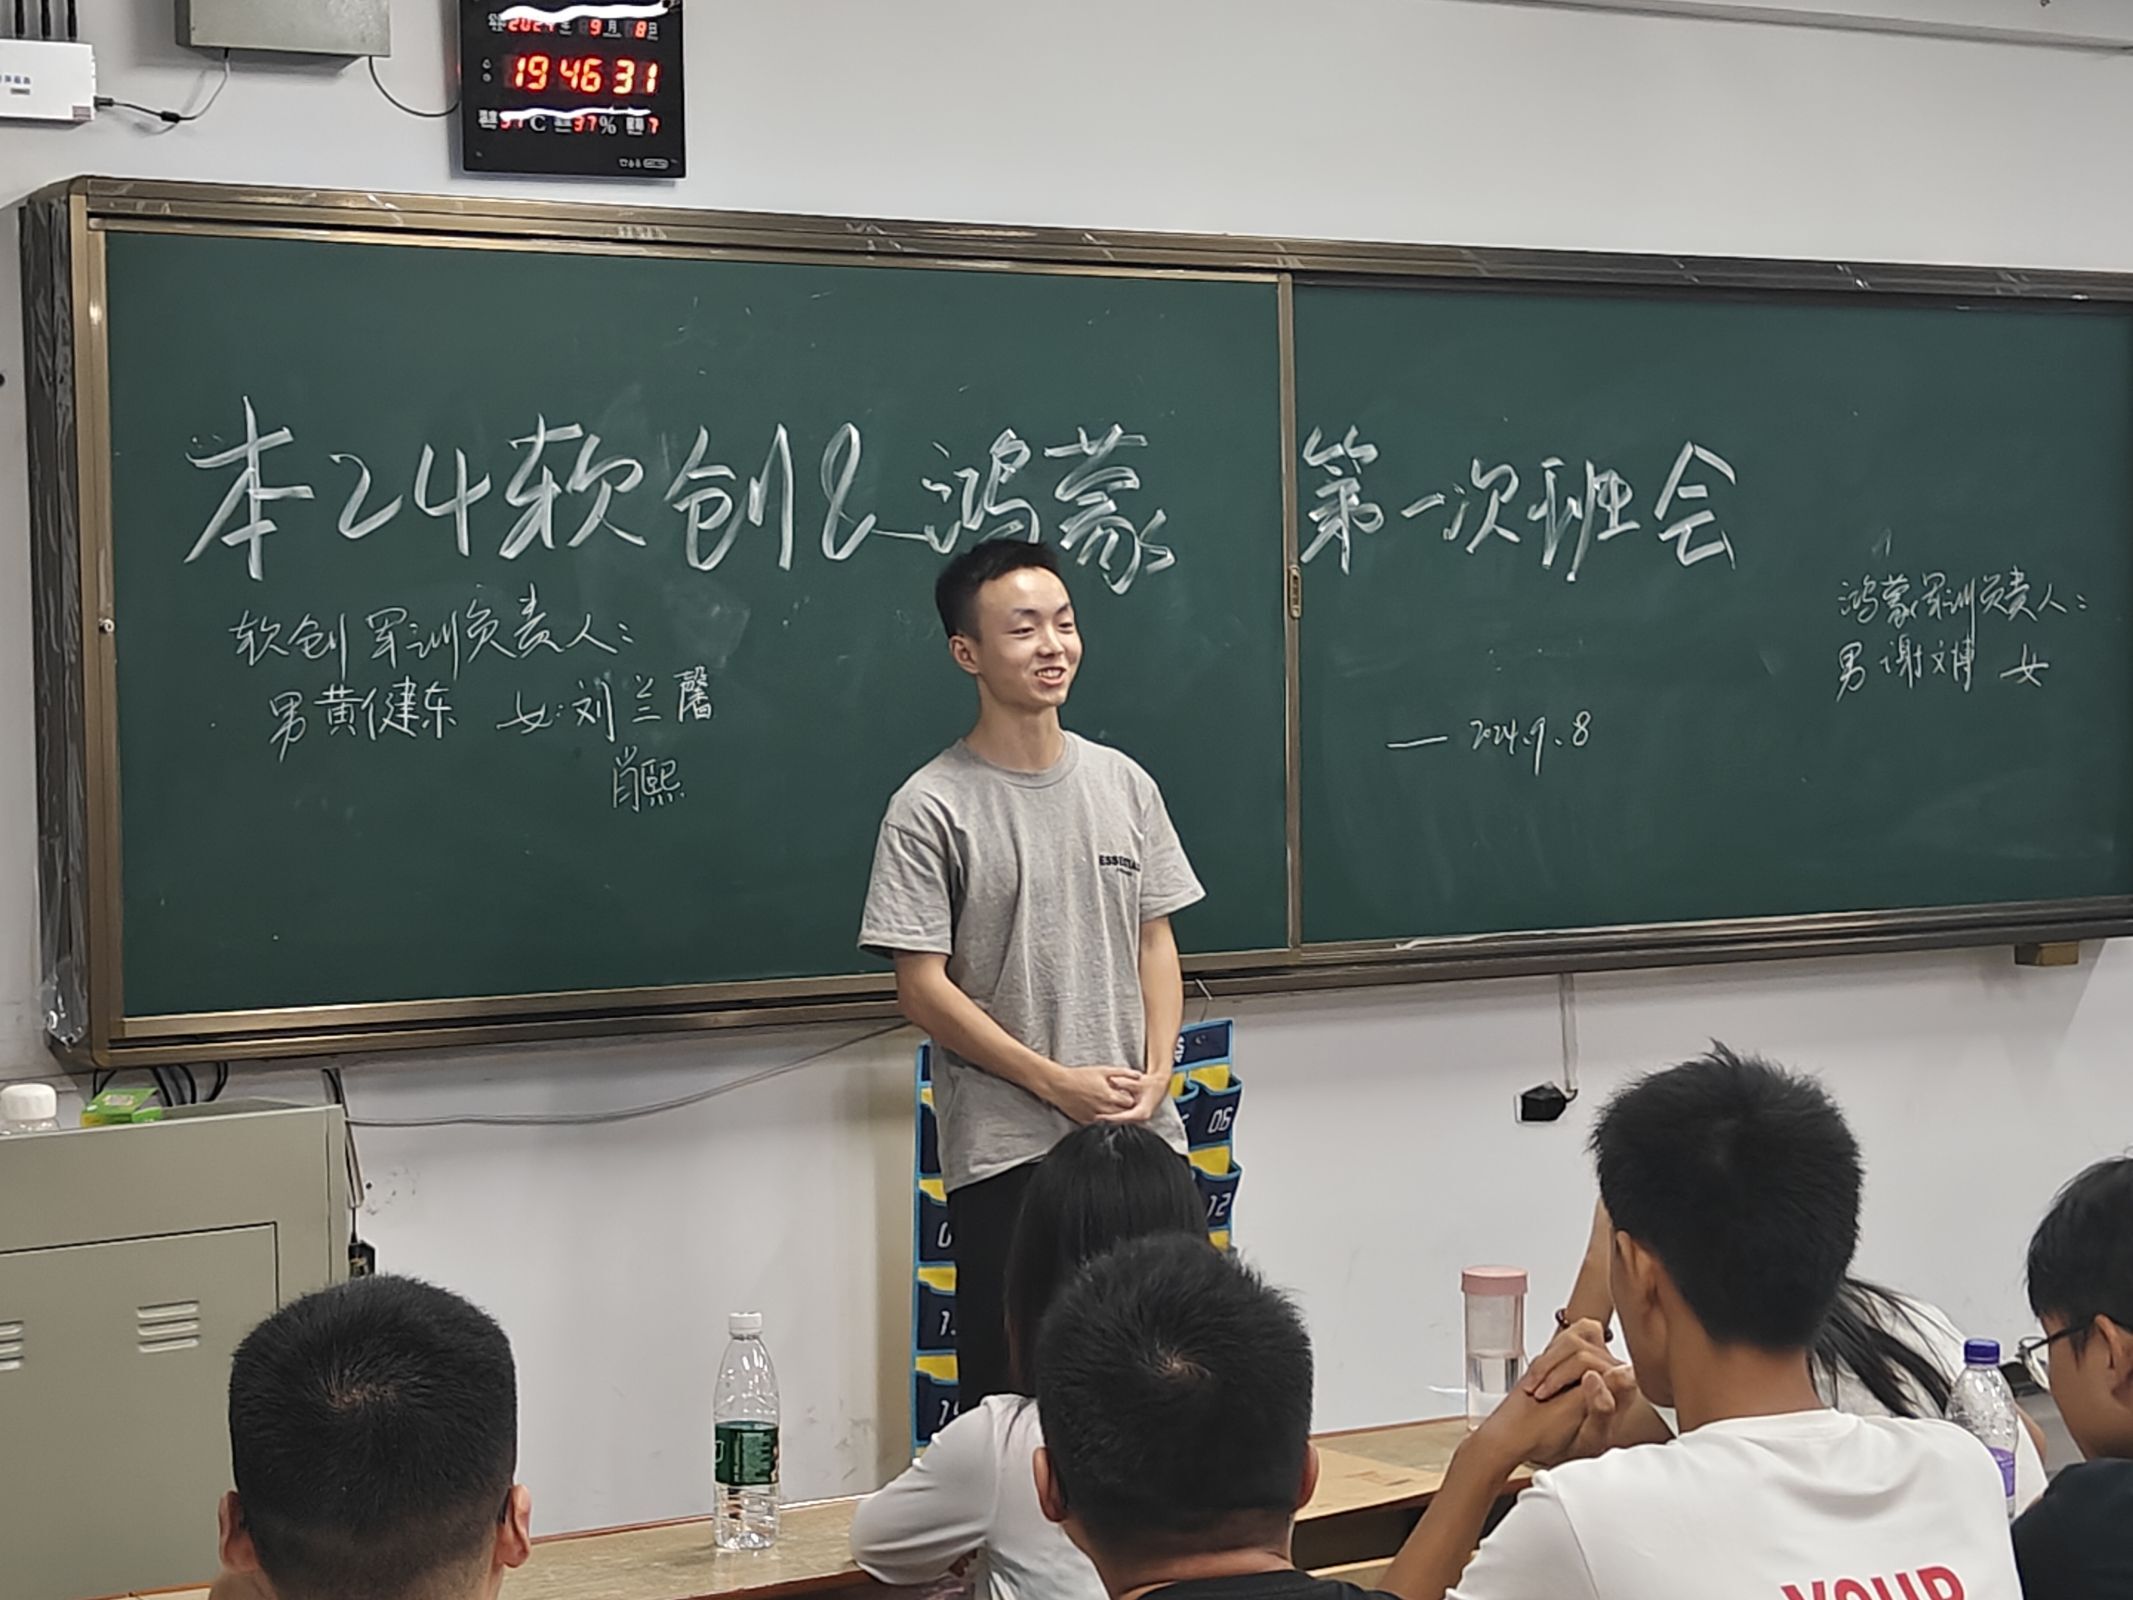 2024年 9月 8日
19 46 31
℃ 37% 星期 7
本24软创&鸿蒙 第一次班会
软创军训负责人:
男黄健东 女:刘兰馨
肖熙
—— 2024.9.8
鸿蒙军训负责人:
男 谢文博 女
06
12
YOUR